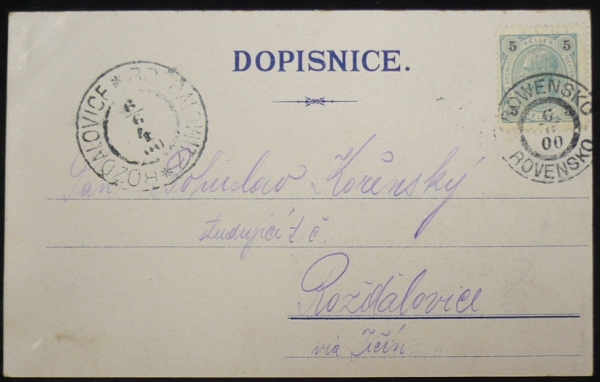 DOPISNICE.
5 HELLER 5
ROWENSKO
6/6
00
ROVENSKO
ROŽĎALOVICE
6/6
4
00
Pan Bohuslav Kořenský
studující t. č.
Rožďálovice
via Jičín.